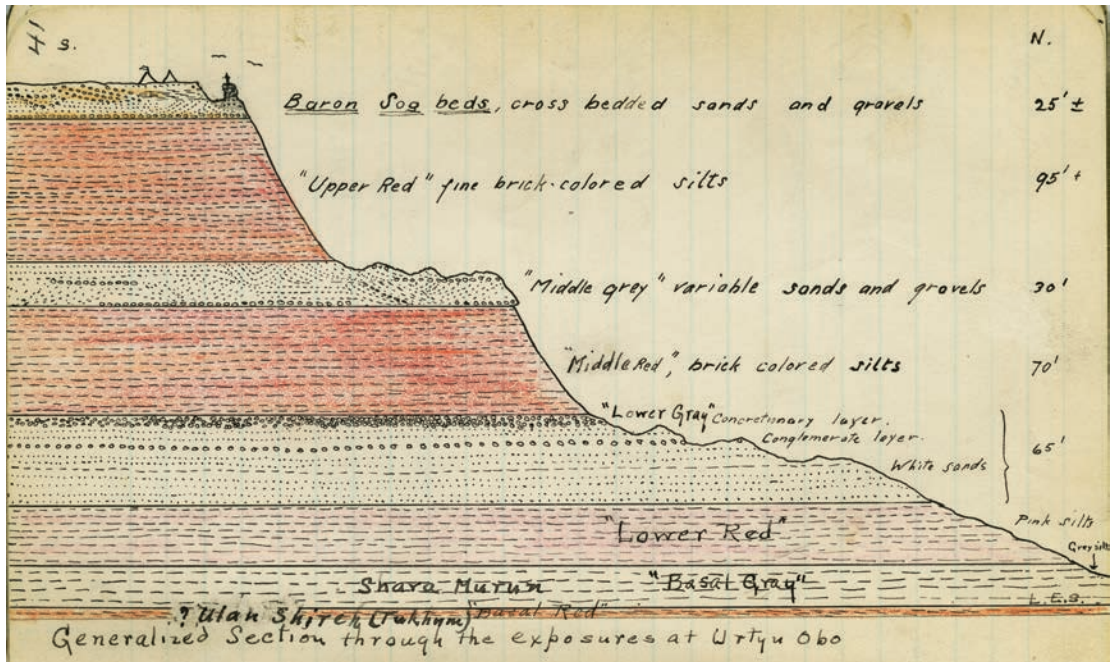 41 S. N.
Baron Sog beds, cross bedded sands and gravels 25' ±
"Upper Red" fine brick-colored silts 95' +
"Middle grey" variable sands and gravels 30'
"Middle Red", brick colored silts 70'
"Lower Gray" Concretionary layer.
Conglomerate layer.
65'
White sands
Pink silts
"Lower Red"
Grey silts
Shara Murun "Basal Gray"
L.E.S.
? Ulan Shireh (Tukhum) "Basal Red"
Generalized Section through the exposures at Urtyn Obo